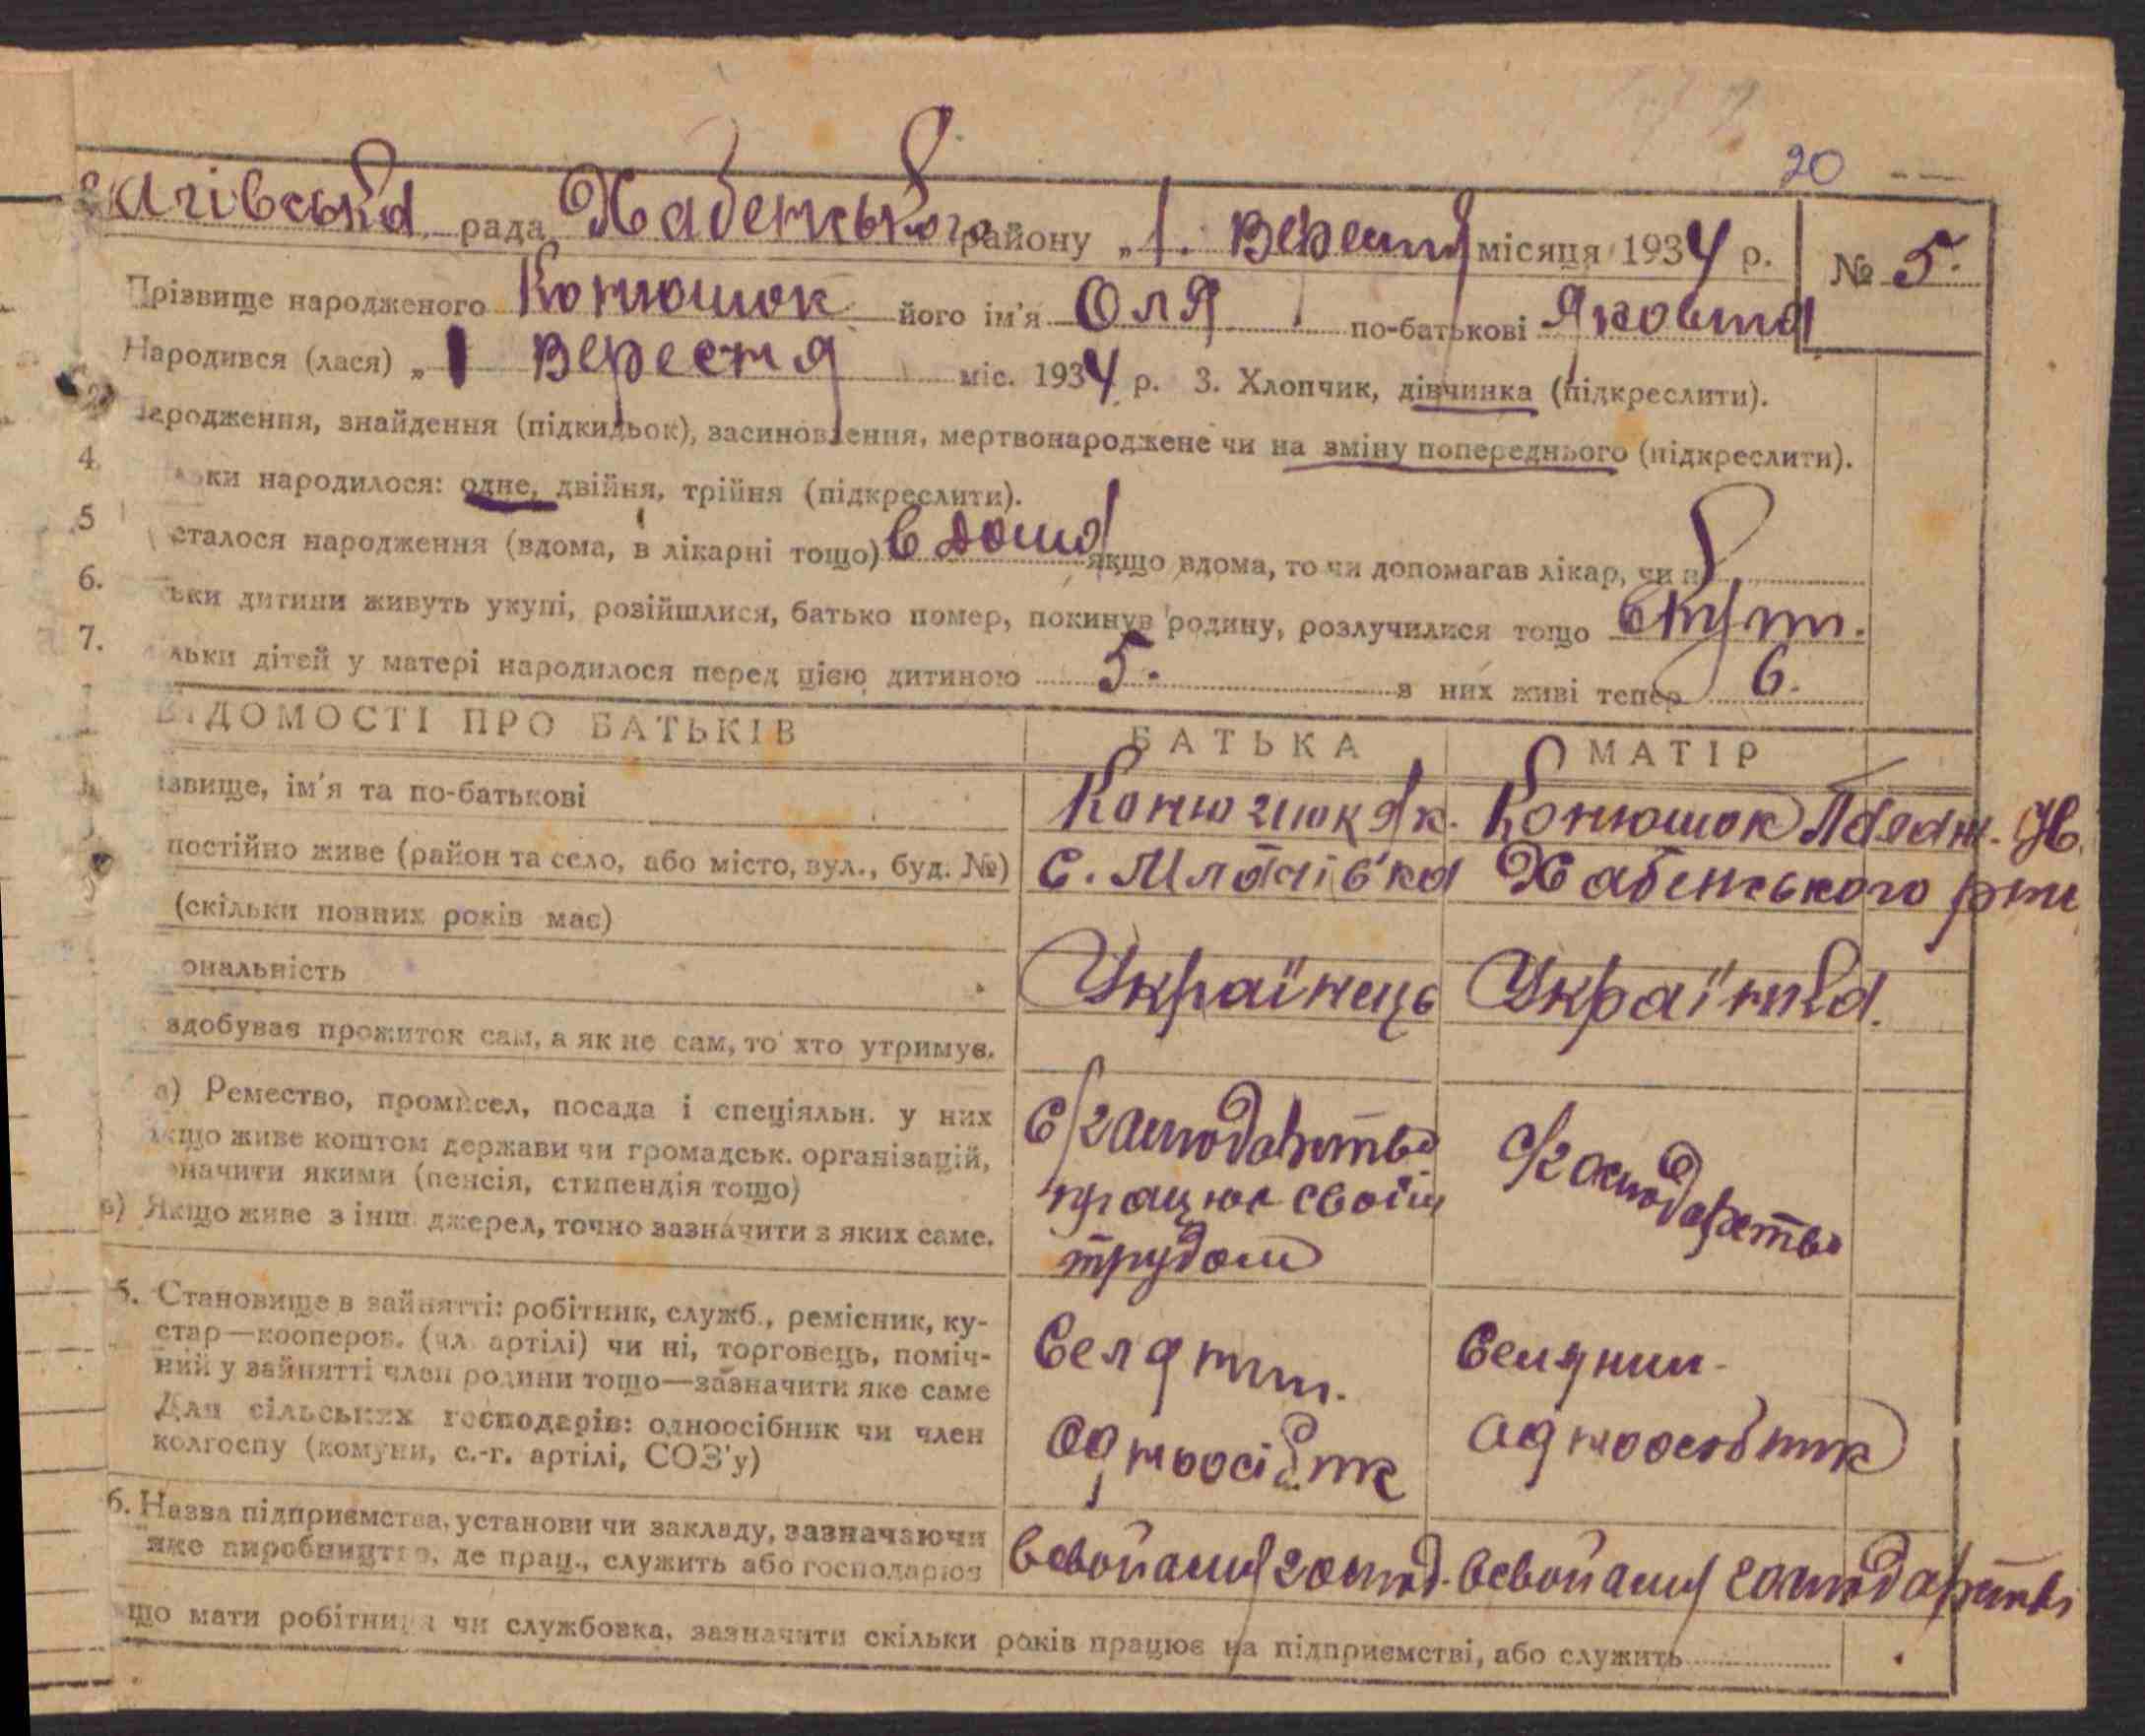 20
рада Хабенського району „1. Вересня місяця 1934 р. № 5.
Прізвище народженого Конюшок його ім'я Оля по-батькові Яковна
Народився (лася) „1 Вересня міс. 1934 р. 3. Хлопчик, дівчинка (підкреслити).
ародження, знайдення (підкидьок), засиновлення, мертвонароджене чи на зміну попереднього (підкреслити).
4. ьки народилося: одне, двійня, трійня (підкреслити).
5 сталося народження (вдома, в лікарні тощо) в дома якщо вдома, то чи допомагав лікар, чи
6. ьки дитини живуть укупі, розійшлися, батько помер, покинув родину, розлучилися тощо
7. льки дітей у матері народилося перед цією дитиною 5. з них живі тепер 6.
ВІДОМОСТІ ПРО БАТЬКІВ БАТЬКА МАТІР
ізвище, ім'я та по-батькові Конюшок Як. Конюшок
постійно живе (район та село, або місто, вул., буд. №) С. Млачівка Хабенського
(скільки повних років має)
ональність Українець Українка.
здобував прожиток сам, а як не сам, то хто утримує.
а) Ремество, промисел, посада і спеціяльн. у них
якщо живе коштом держави чи громадськ. організацій,
значити якими (пенсія, стипендія тощо)
в) Якщо живе з інш. джерел, точно зазначити з яких саме.
с/господарство
працює своїм
трудом
с/господарство
5. Становище в зайнятті: робітник, служб., ремісник, ку-
стар—кооперов. (чл. артілі) чи ні, торговець, поміч-
ний у зайнятті член родини тощо—зазначити яке саме
Для сільських господарів: одноосібник чи член
колгоспу (комуни, с.-г. артілі, СОЗ'у)
Селянин.
Одноосібник
Селянин
Адноособник
6. Назва підприємства, установи чи закладу, зазначаючи
яке виробництво, де прац., служить або господарює
що мати робітниця чи службовка, зазначити скільки років працює на підприємстві, або служить